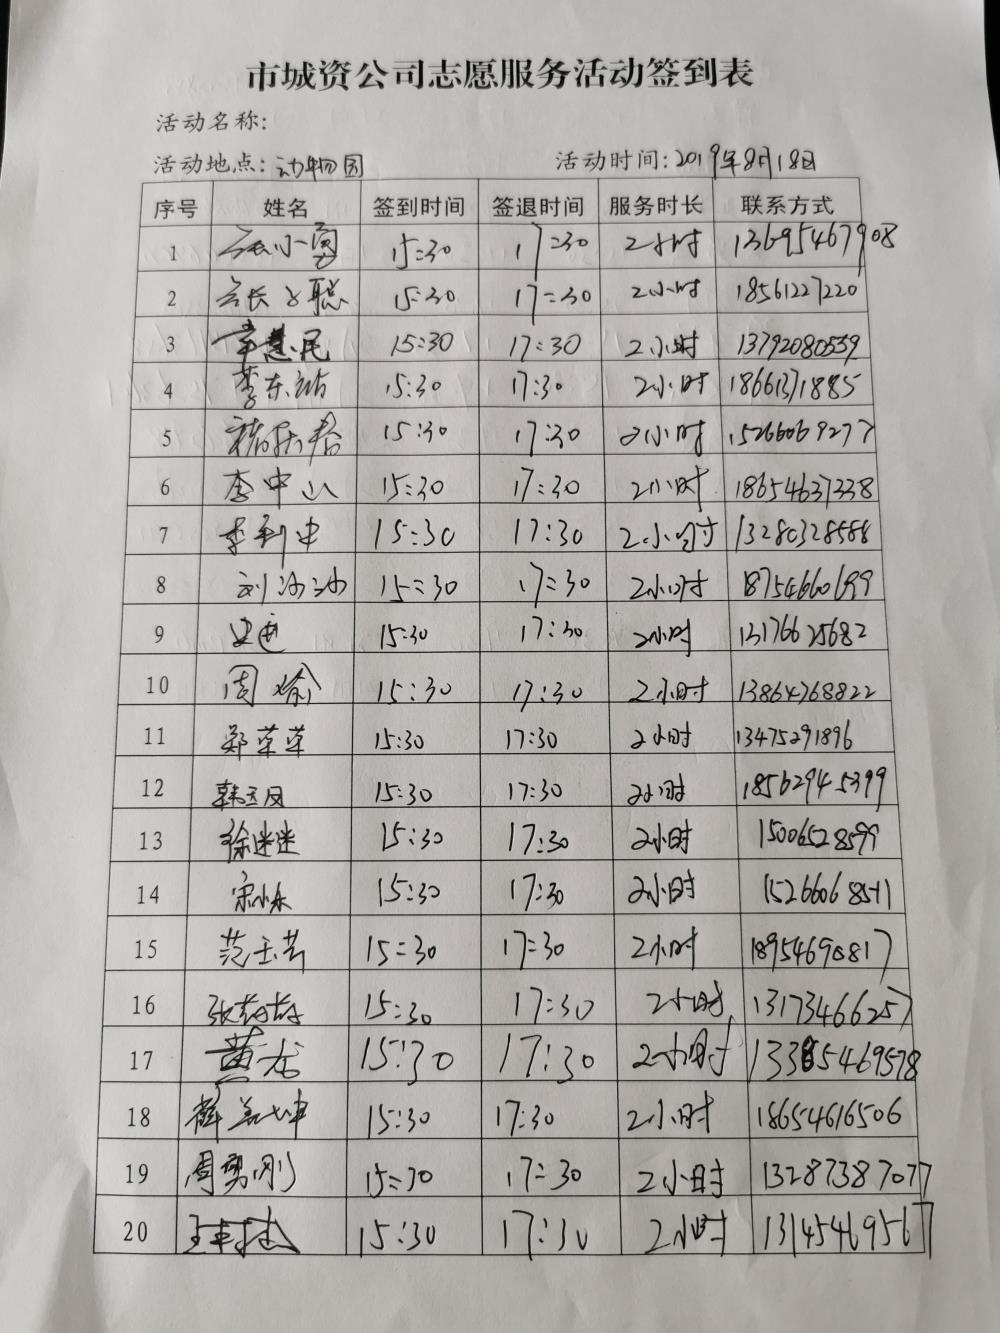 市城资公司志愿服务活动签到表
活动名称:
活动地点: 动物园 活动时间: 2019年8月18日
序号 姓名 签到时间 签退时间 服务时长 联系方式
1 15:30 17:30 2小时 13695467908
2 15:30 17:30 2小时 18561227220
3 15:30 17:30 2小时 13792080539
4 15:30 17:30 2小时 18661371885
5 15:30 17:30 2小时 15266069277
6 李中山 15:30 17:30 2小时 18654637338
7 15:30 17:30 2小时 13280328588
8 刘沙沙 15:30 17:30 2小时 18754660699
9 15:30 17:30 2小时 13176625682
10 周瑜 15:30 17:30 2小时 13864768822
11 郑荣荣 15:30 17:30 2小时 13475291896
12 韩玉凤 15:30 17:30 2小时 18562945399
13 徐迷迷 15:30 17:30 2小时 15006528599
14 宋小东 15:30 17:30 2小时 15266068511
15 范玉芸 15:30 17:30 2小时 18954690817
16 15:30 17:30 2小时 13173466257
17 黄龙 15:30 17:30 2小时 13385469578
18 15:30 17:30 2小时 18654616506
19 周勇刚 15:30 17:30 2小时 13287387077
20 15:30 17:30 2小时 13145469567